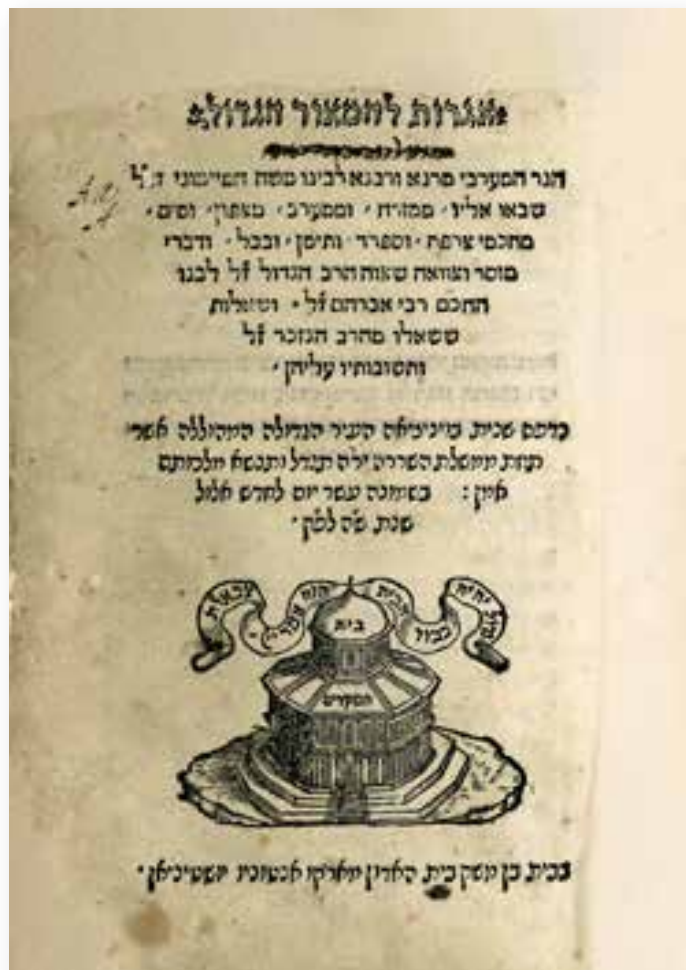 אגרות להמאור הגדול
הנר המערבי מרנא ורבנא רבינו משה המיימוני ז״ל
שבאו אליו ממזרח ׳ וממערב ׳ מצפון ׳ ומים ׳
מחכמי צרפת ׳ וספרד ׳ ותימן ׳ ובבל ׳ ודברי
מוסר וצוואה שצוה הרב הגדול ז״ל לבנו
החכם רבי אברהם ז״ל ׳ ושאלות
ששאלו מהרב הנזכר ז״ל
ותשובותיו עליהן ׳
נדפס שנית, בויניציאה העיר הגדולה המהוללה אשר
תחת ממשלת השררה יר״ה תגדל ותנשא מלכותם
אמן : בשמונה עשר יום לחדש אלול
שנת, ש״ה לפ״ק ׳
גדול יהיה כבוד הבית הזה האחרון
בית
המקדש
בבית, בן משק בית, האדון מארקו אנטוניו יושטיניאן ׳